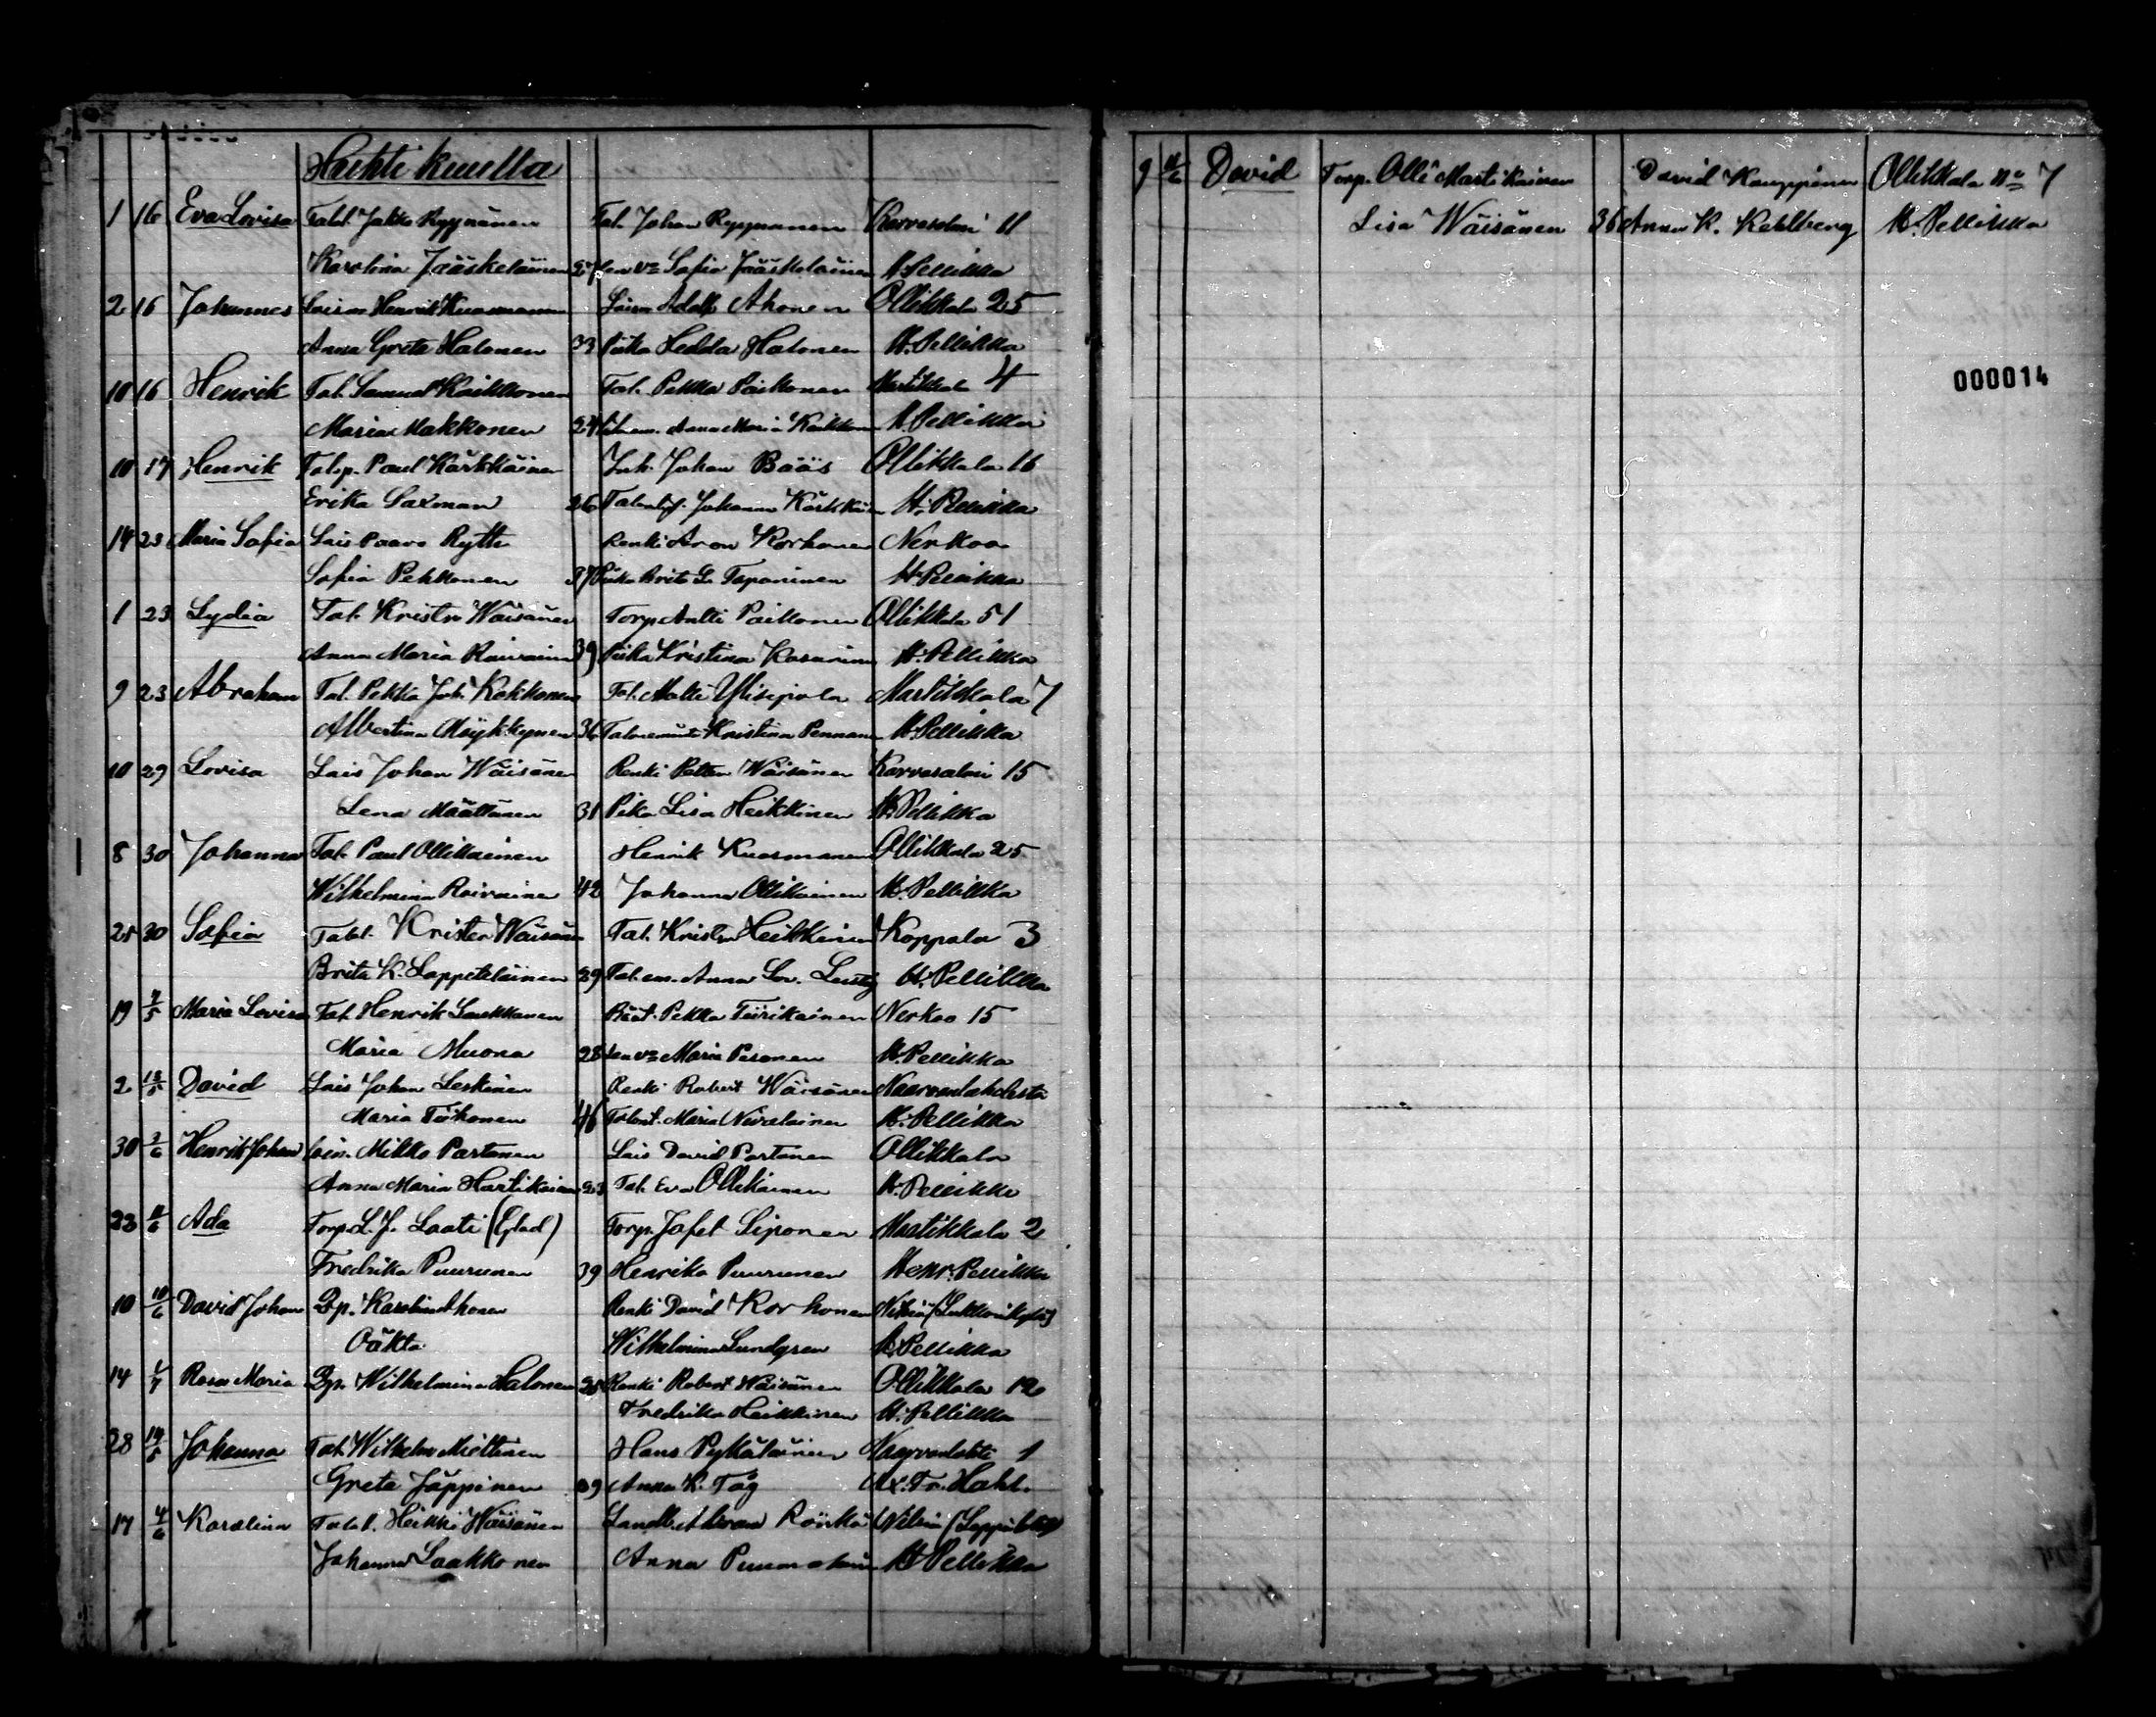 Huhti kuulla
1 16 Eva Lovisa Talol. Jakko Ryynänen Tal. Johan Ryynänen Karvasalmi 11
Karolina Jääskeläinen 27 Sofia Jääskeläinen H. Pellikka
2 16 Johannes Henrik Kuosmanen Adolf Ahonen Ollikkala 25
Anna Greta Halonen 33 Piika Hedda Halonen H. Pellikka
10 16 Henrik Tal. Samuel Kaikkonen Tal. Pekka Martikkala 4
Maria Makkonen 24 Anna Maria H. Pellikka
10 17 Henrik Talp. Paul Kärkkäinen Inh. Johan Bääs Ollikkala 16
Erika Saxman 26 Johanna H. Pellikka
14 23 Maria Sofia Lois Paavo Rytti Renki Aron Korhonen Nerkoo
Sofia Pekkonen 37 Piika Brita L. Taponinen H. Pellikka
1 23 Lydia Tal. Krister Wäisänen Torp. Antti Ollikkala 51
Anna Maria 39 Piika Kristina H. Pellikka
9 23 Abraham Tal. Pekka Joh. Kokkonen Tal. Matti Martikkala 7
Albertina Möykkynen 36 Kristina H. Pellikka
10 29 Lovisa Lois Johan Wäisänen Renki Petter Wäisänen Karvasalmi 15
Lena Määttänen 31 Piika Lisa Heikkinen H. Pellikka
8 30 Johanna Tal. Paul Ollikainen Henrik Kuosmanen Ollikkala 25
Wilhelmina 42 Johanna Ollikainen H. Pellikka
25 30 Sofia Talol. Krister Wäisänen Tal. Krister Heikkinen Koppala 3
Brita K. Lappeteläinen 29 Tal. em. Anna Lov. H. Pellikka
19 4/5 Maria Lovisa Tal. Henrik Laukkanen Pekka Tiirikainen Nerkoo 15
Maria Muona 28 Maria Pesonen H. Pellikka
2 13/5 David Lois Johan Leskinen Renki Robert Wäisänen
Maria Tiihonen 46 Maria Nivalainen H. Pellikka
30 2/6 Henrik Johan Loin. Mikko Partanen Lois David Partanen Ollikkala
Anna Maria Hartikainen 23 Tal. Eva Ollikainen H. Pellikka
23 11/6 Ada Torp. L. J. Laati (Glad) Torp. Jafet Siponen Martikkala 2
Fredrika Puurunen 39 Henrika Puurunen Henr. Pellikka
10 10/6 David Johan Qp. Karolina Ahonen Renki David Korhonen
Wilhelmina Lundgren H. Pellikka
14 1/7 Rosa Maria Qp. Wilhelmina Halonen 25 Renki Robert Wäisänen Ollikkala 12
Fredrika Heikkinen H. Pellikka
28 14/5 Johanna Tal. Wilhelm Miettinen Hans Pykäläinen 1
Greta Jäppinen 39 Anna K. Tåg Ax. Fr. Hahl.
17 4/6 Karolina Talol. Heikki Wäisänen Abram Rönkä
Johanna Laakkonen Anna H. Pellikka
9 11/6 David Torp. Olli Martikainen David Kauppinen Ollikkala No 7
Lisa Wäisänen 36 Anna K. Kahlberg H. Pellikka
000014